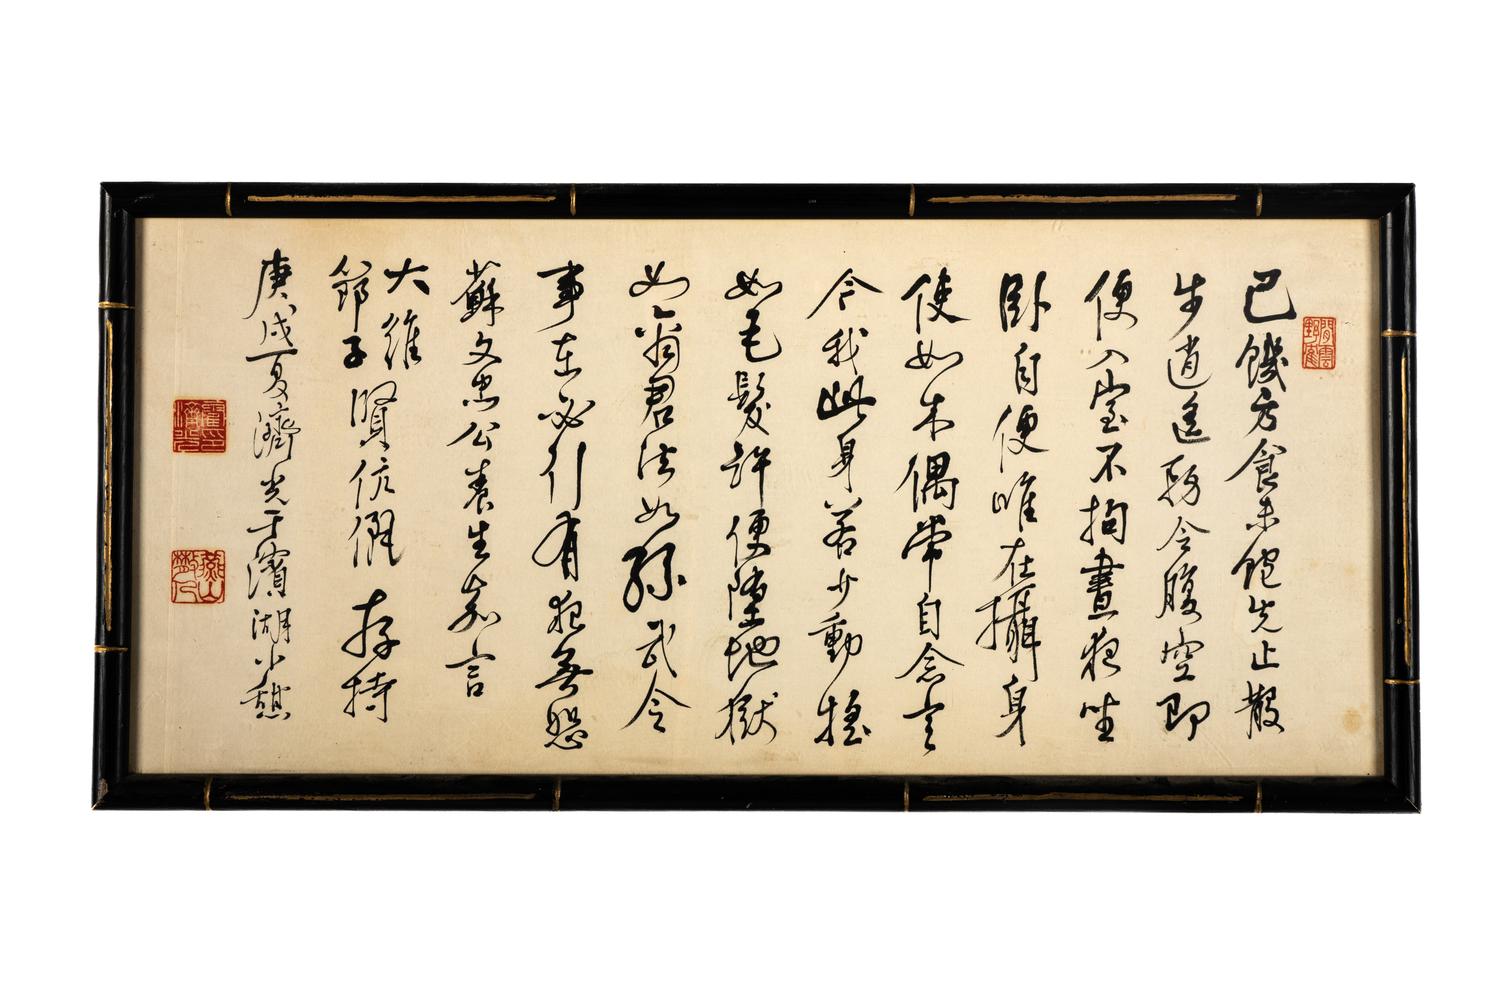 已饑方食未飽先止散
步逍遙務令腹空即
便入室不拘晝夜坐
臥自便唯在攝身
使如木偶常自念言
今我此身若少動搖
如毛髮許便墮地獄
如商君法如孫武令
事在必行有犯無恕
蘇文忠公養生嘉言
大維
節子賢伉儷 存持
庚戌夏濟光于濱湖小憩
閒雲野鶴